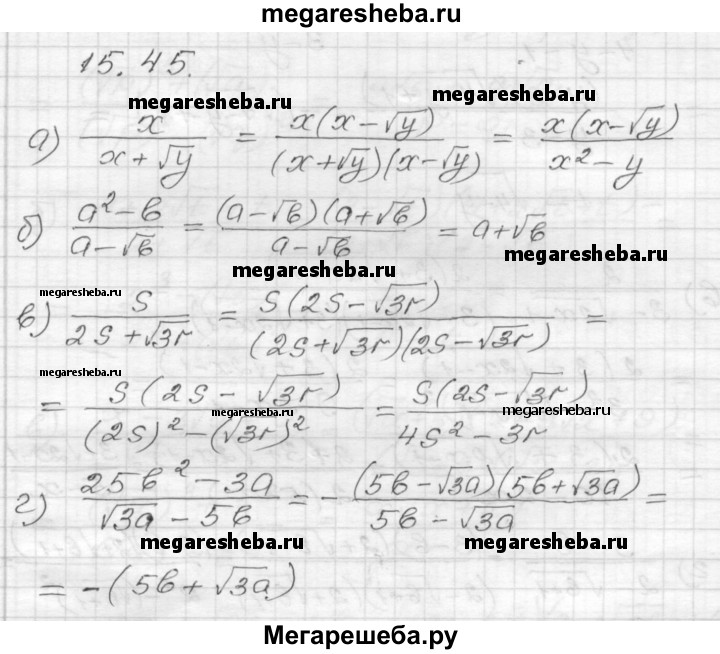 megaresheba.ru
15.45.
megaresheba.ru megaresheba.ru
а) x/(x+√y) = x(x-√y)/((x+√y)(x-√y)) = x(x-√y)/(x²-y)
б) (a²-b)/(a-√b) = (a-√b)(a+√b)/(a-√b) = a+√b
megaresheba.ru megaresheba.ru
megaresheba.ru
в) S/(2S+√3r) = S(2S-√3r)/((2S+√3r)(2S-√3r)) =
megaresheba.ru
= S(2S-√3r)/((2S)²-(√3r)²) = S(2S-√3r)/(4S²-3r)
megaresheba.ru megaresheba.ru
г) (25b²-3a)/(√3a-5b) = -(5b-√3a)(5b+√3a)/(5b-√3a) =
megaresheba.ru megaresheba.ru
= -(5b+√3a)
Мегарешеба.ру